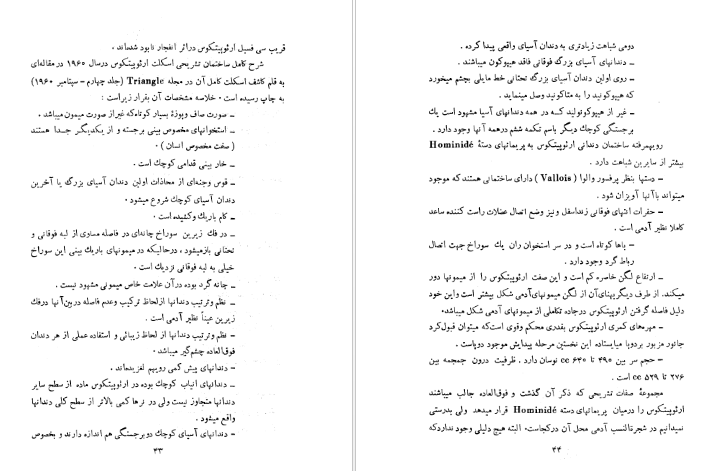 قریب سی فسیل ارئوپیتکوس دراثر انفجار نابود شده‌اند.
شرح کامل ساختمان تشریحی اسکلت ارئوپیتکوس درسال ۱۹۶۰ در مقاله‌ای
به قلم کاشف اسکلت کامل آن در مجله Triangle (جلد چهارم – سپتامبر ۱۹۶۰)
به چاپ رسیده است. خلاصه مشخصات آن بقرار زیراست:
– صورت صاف وپوزهٔ بسیار کوتاه‌که غیراز صورت میمون میباشد.
– استخوانهای مخصوص بینی برجسته و از یکدیگر جدا هستند
(صفت مخصوص انسان).
– خار بینی قدامی کوچك است.
– قوس وجنه‌ای از محاذات اولین دندان آسیای بزرگ یا آخرین
دندان آسیای کوچك شروع میشود.
– کام باریك وکشیده است.
– در فك زیرین سوراخ چانه‌ای در فاصله مساوی از لبه فوقانی و
تحتانی بازمیشود، درحالیکه در میمونهای باریك بینی این سوراخ
خیلی به لبه فوقانی نزدیك است.
– چانه گرد بوده درآن علامت خاص میمونی مشهود نیست.
– نظم وترتیب دندانها ازلحاظ ترکیب وعدم فاصله دربین‌آنها درفك
زیرین عیناً نظیر آدمی است.
– نظم وترتیب دندانها از لحاظ زیبائی و استفاده عملی از هر دندان
فوق‌العاده چشم‌گیر میباشد.
– دندانهای پیش کمی رویهم لغزیده‌اند.
– دندانهای انیاب کوچك بوده در ارئوپیتکوس ماده از سطح سایر
دندانها متجاوز نیست ولی در نرها کمی بالاتر از سطح کلی دندانها
واقع میشود.
– دندانهای آسیای کوچك دوبرجستگی هم اندازه دارند و بخصوص
۴۳
دومی شباهت زیادتری به دندان آسیای واقعی پیدا کرده.
– دندانهای آسیای بزرگ فوقانی فاقد هیپوکون میباشند.
– روی اولین دندان آسیای بزرگ تحتانی خط مایلی بچشم میخورد
که هیپوکونید را به متاکونید وصل مینماید.
– غیر از هیپوکونولید که در همه دندانهای آسیا مشهود است یك
برجستگی کوچك دیگر باسم تکمه ششم درهمه آنها وجود دارد.
رویهمرفته ساختمان دندانی ارئوپیتکوس به پریماتهای دستهٔ Hominidé
بیشتر از سایرین شباهت دارد.
– دستها بنظر پرفسور والوا (Vallois) دارای ساختمانی هستندکه موجود
میتواند باآنها آویزان شود.
– حفرات انتهای فوقانی زنداسفل ونیز وضع اتصال عضلات راست کننده ساعد
کاملا نظیر آدمی است.
– پاها کوتاه است و در سر استخوان ران یك سوراخ جهت اتصال
رباط گرد وجود دارد.
– ارتفاع لگن خاصره کم است و این صفت ارئوپیتکوس را از میمونها دور
میکند. از طرف دیگرپهنای‌آن از لگن میمونهای‌آدمی شکل بیشتر است واین خود
دلیل فاصله گرفتن ارئوپیتکوس درجاده تکاملی از میمونهای آدمی شکل میباشد.
– مهره‌های کمری ارئوپیتکوس بقدری محکم وقوی است‌که میتوان قبول‌کرد
جانور مزبور بردوپا میایستاده این نخستین مرحله پیدایش موجود دوپاست.
– حجم سر بین ۴۹۰ تا ۶۴۰ cc نوسان دارد. ظرفیت درون جمجمه بین
۲۷۶ تا ۵۲۹ cc است.
مجموعهٔ صفات تشریحی که ذکر آن گذشت و فوق‌العاده جالب میباشند
ارئوپیتکوس را درمیان پریماتهای دسته Hominidé قرار میدهد ولی بدرستی
نمیدانیم در شجرةالنسب آدمی محل آن درکجاست. البته هیچ دلیلی وجود نداردکه
۴۴